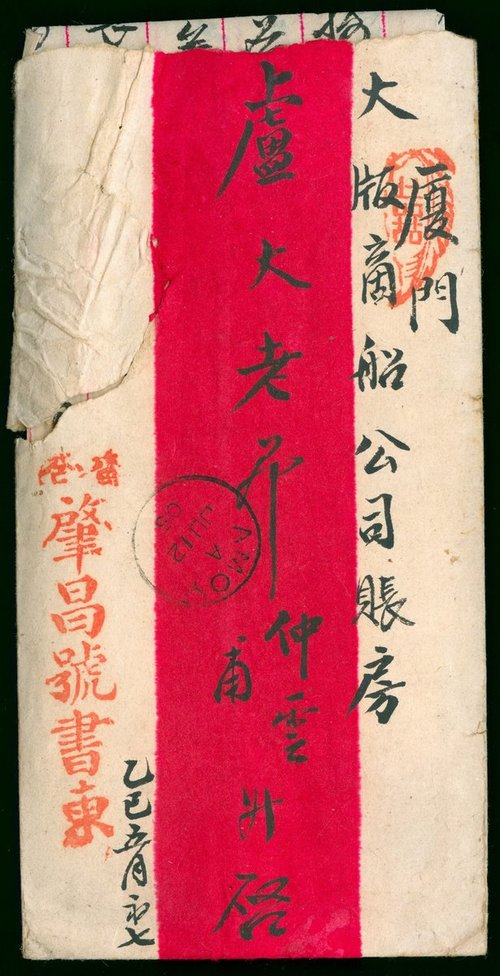 廈門
大版商船公司賬房
盧大老爺
仲雲
甫
升啓
AMOY
A
JU 12
05
香港
肇昌號書柬
乙巳五月初七